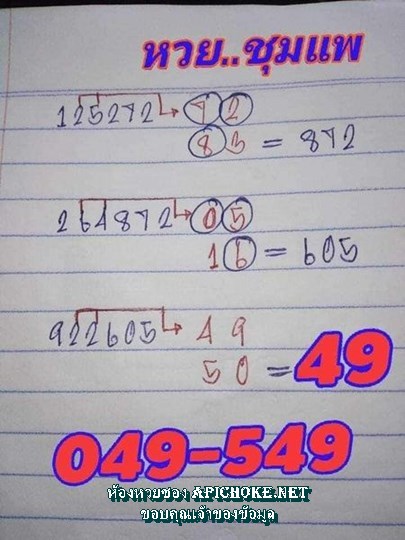 หวย..ชุมแพ
125272 72
83 = 872
264872 05
16 = 605
922605 49
50 = 49
049-549
ห้องหวยซอง APICHOKE.NET
ขอบคุณเจ้าของข้อมูล